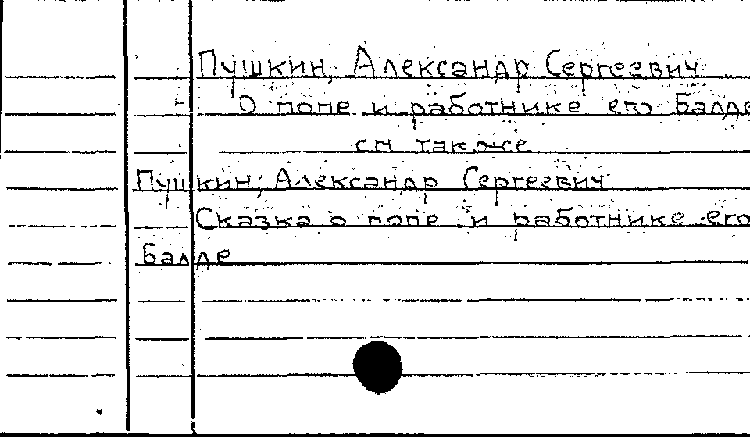 Пушкин, Александр Сергеевич
О попе и работнике его Балде
см также
Пушкин, Александр Сергеевич
Сказка о попе и работнике его
Балде